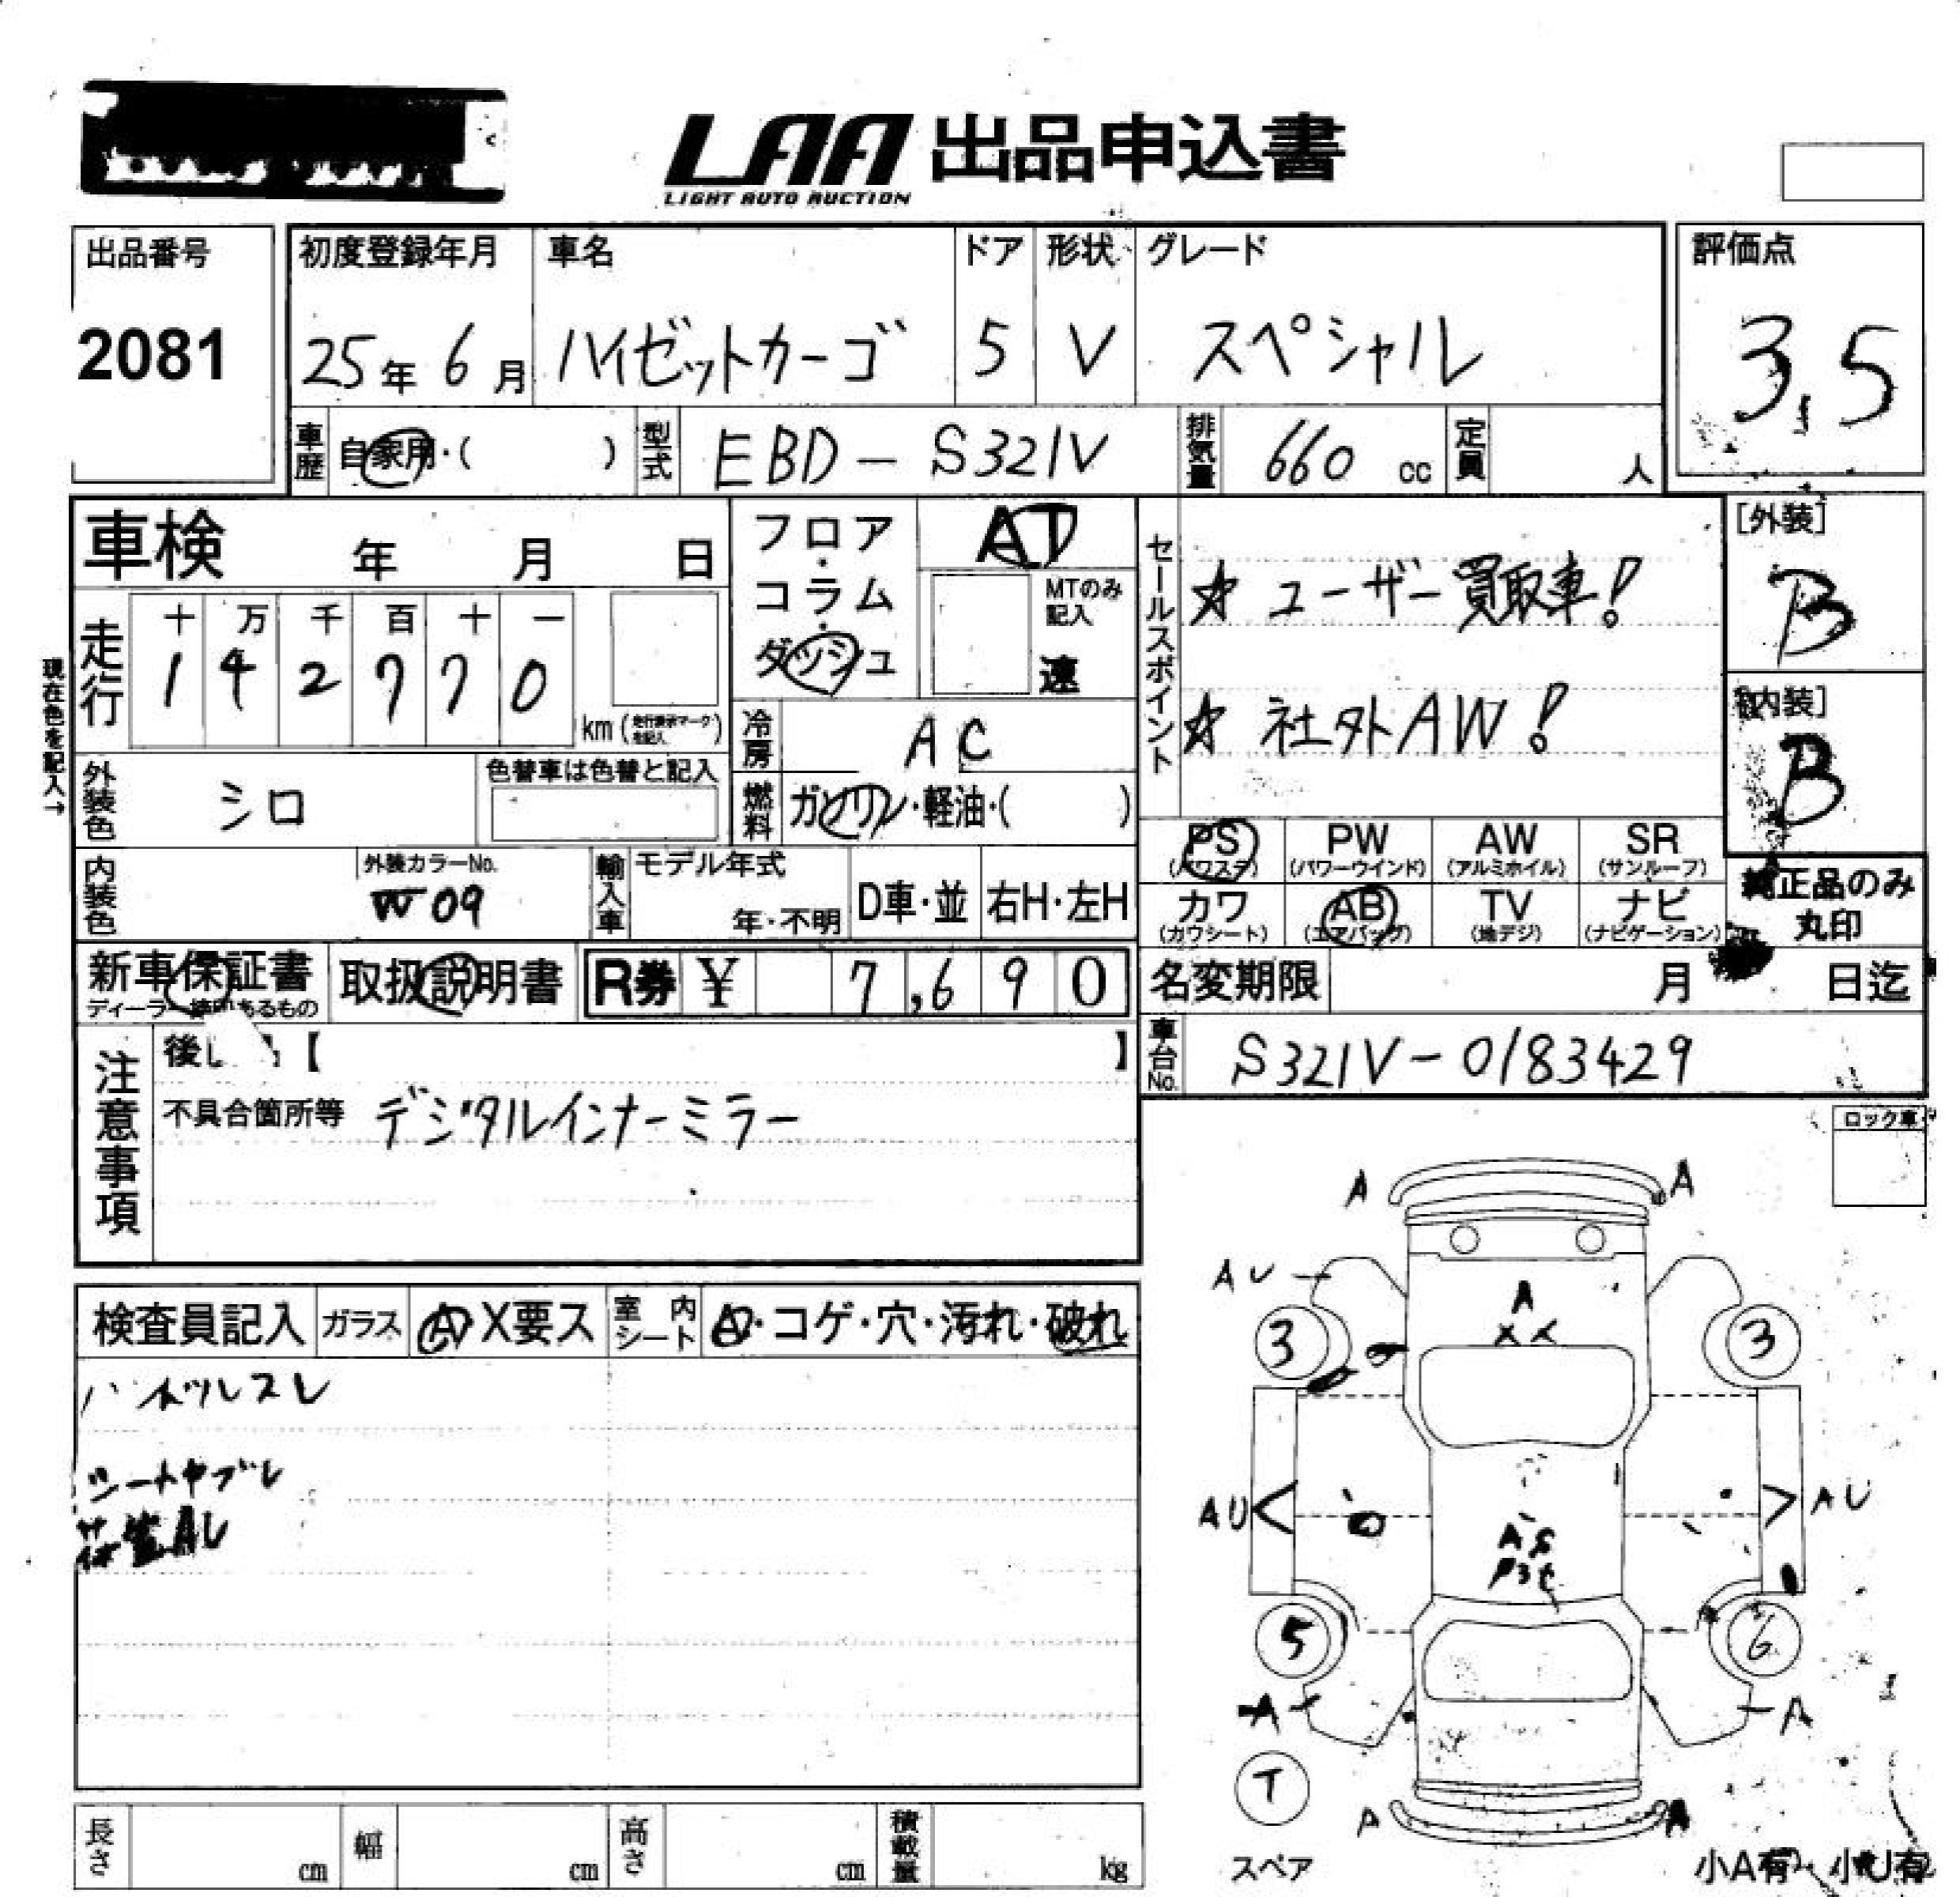 LAA 出品申込書
LIGHT AUTO AUCTION
出品番号
2081
初度登録年月
25年 6月
車名
ハイゼットカーゴ
ドア
5
形状
V
グレード
スペシャル
評価点
3.5
車歴 自家用・( )
型式 EBD-S321V
排気量 660 cc
定員 人
車検 年 月 日
フロア・コラム・ダッシュ
AT
MTのみ記入
速
走行
十 万 千 百 十 一
1 4 2 7 7 0
km (走行表示マークを記入)
現在色を記入→
冷房 AC
燃料 ガソリン・軽油・( )
外装色 シロ
色替車は色替と記入
内装色
外装カラーNo.
W09
輸入車
モデル年式
年・不明
D車・並
右H・左H
セールスポイント
☆ ユーザー買取車!
☆ 社外AW!
[外装]
B
[内装]
B
PS (パワステ)
PW (パワーウインド)
AW (アルミホイル)
SR (サンルーフ)
カワ (カワシート)
AB (エアバッグ)
TV (地デジ)
ナビ (ナビゲーション)
純正品のみ
丸印
新車保証書
取扱説明書
R券 ¥ 7,690
名変期限 月 日迄
車台No. S321V-0183429
注意事項
不具合箇所等 デジタルインナーミラー
ロック車
検査員記入
ガラス A・X要ス
室内シート A・コゲ・穴・汚れ・破れ
ハネツレスレ
シートヤブレ
荷室AU
A A
AU
A
XX
3 3
AU AU
5 6
A A
T
A A
スペア
小A有・小U有
長さ cm
幅 cm
高さ cm
積載量 kg